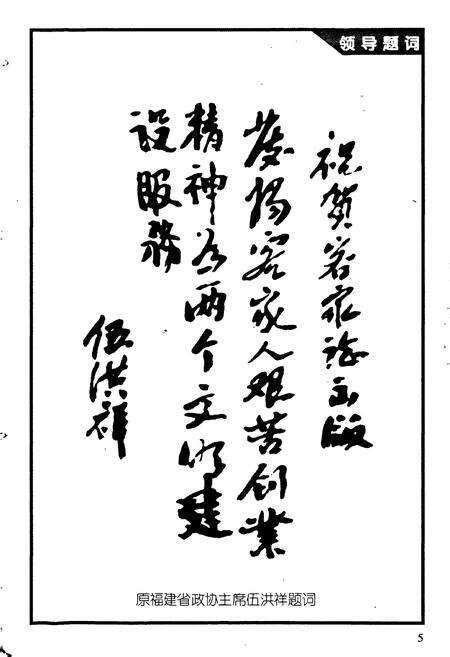 领导题词
祝贺客家志出版
发扬客家人艰苦创業
精神为两个文明建
設服務
伍洪祥
原福建省政协主席伍洪祥题词
5